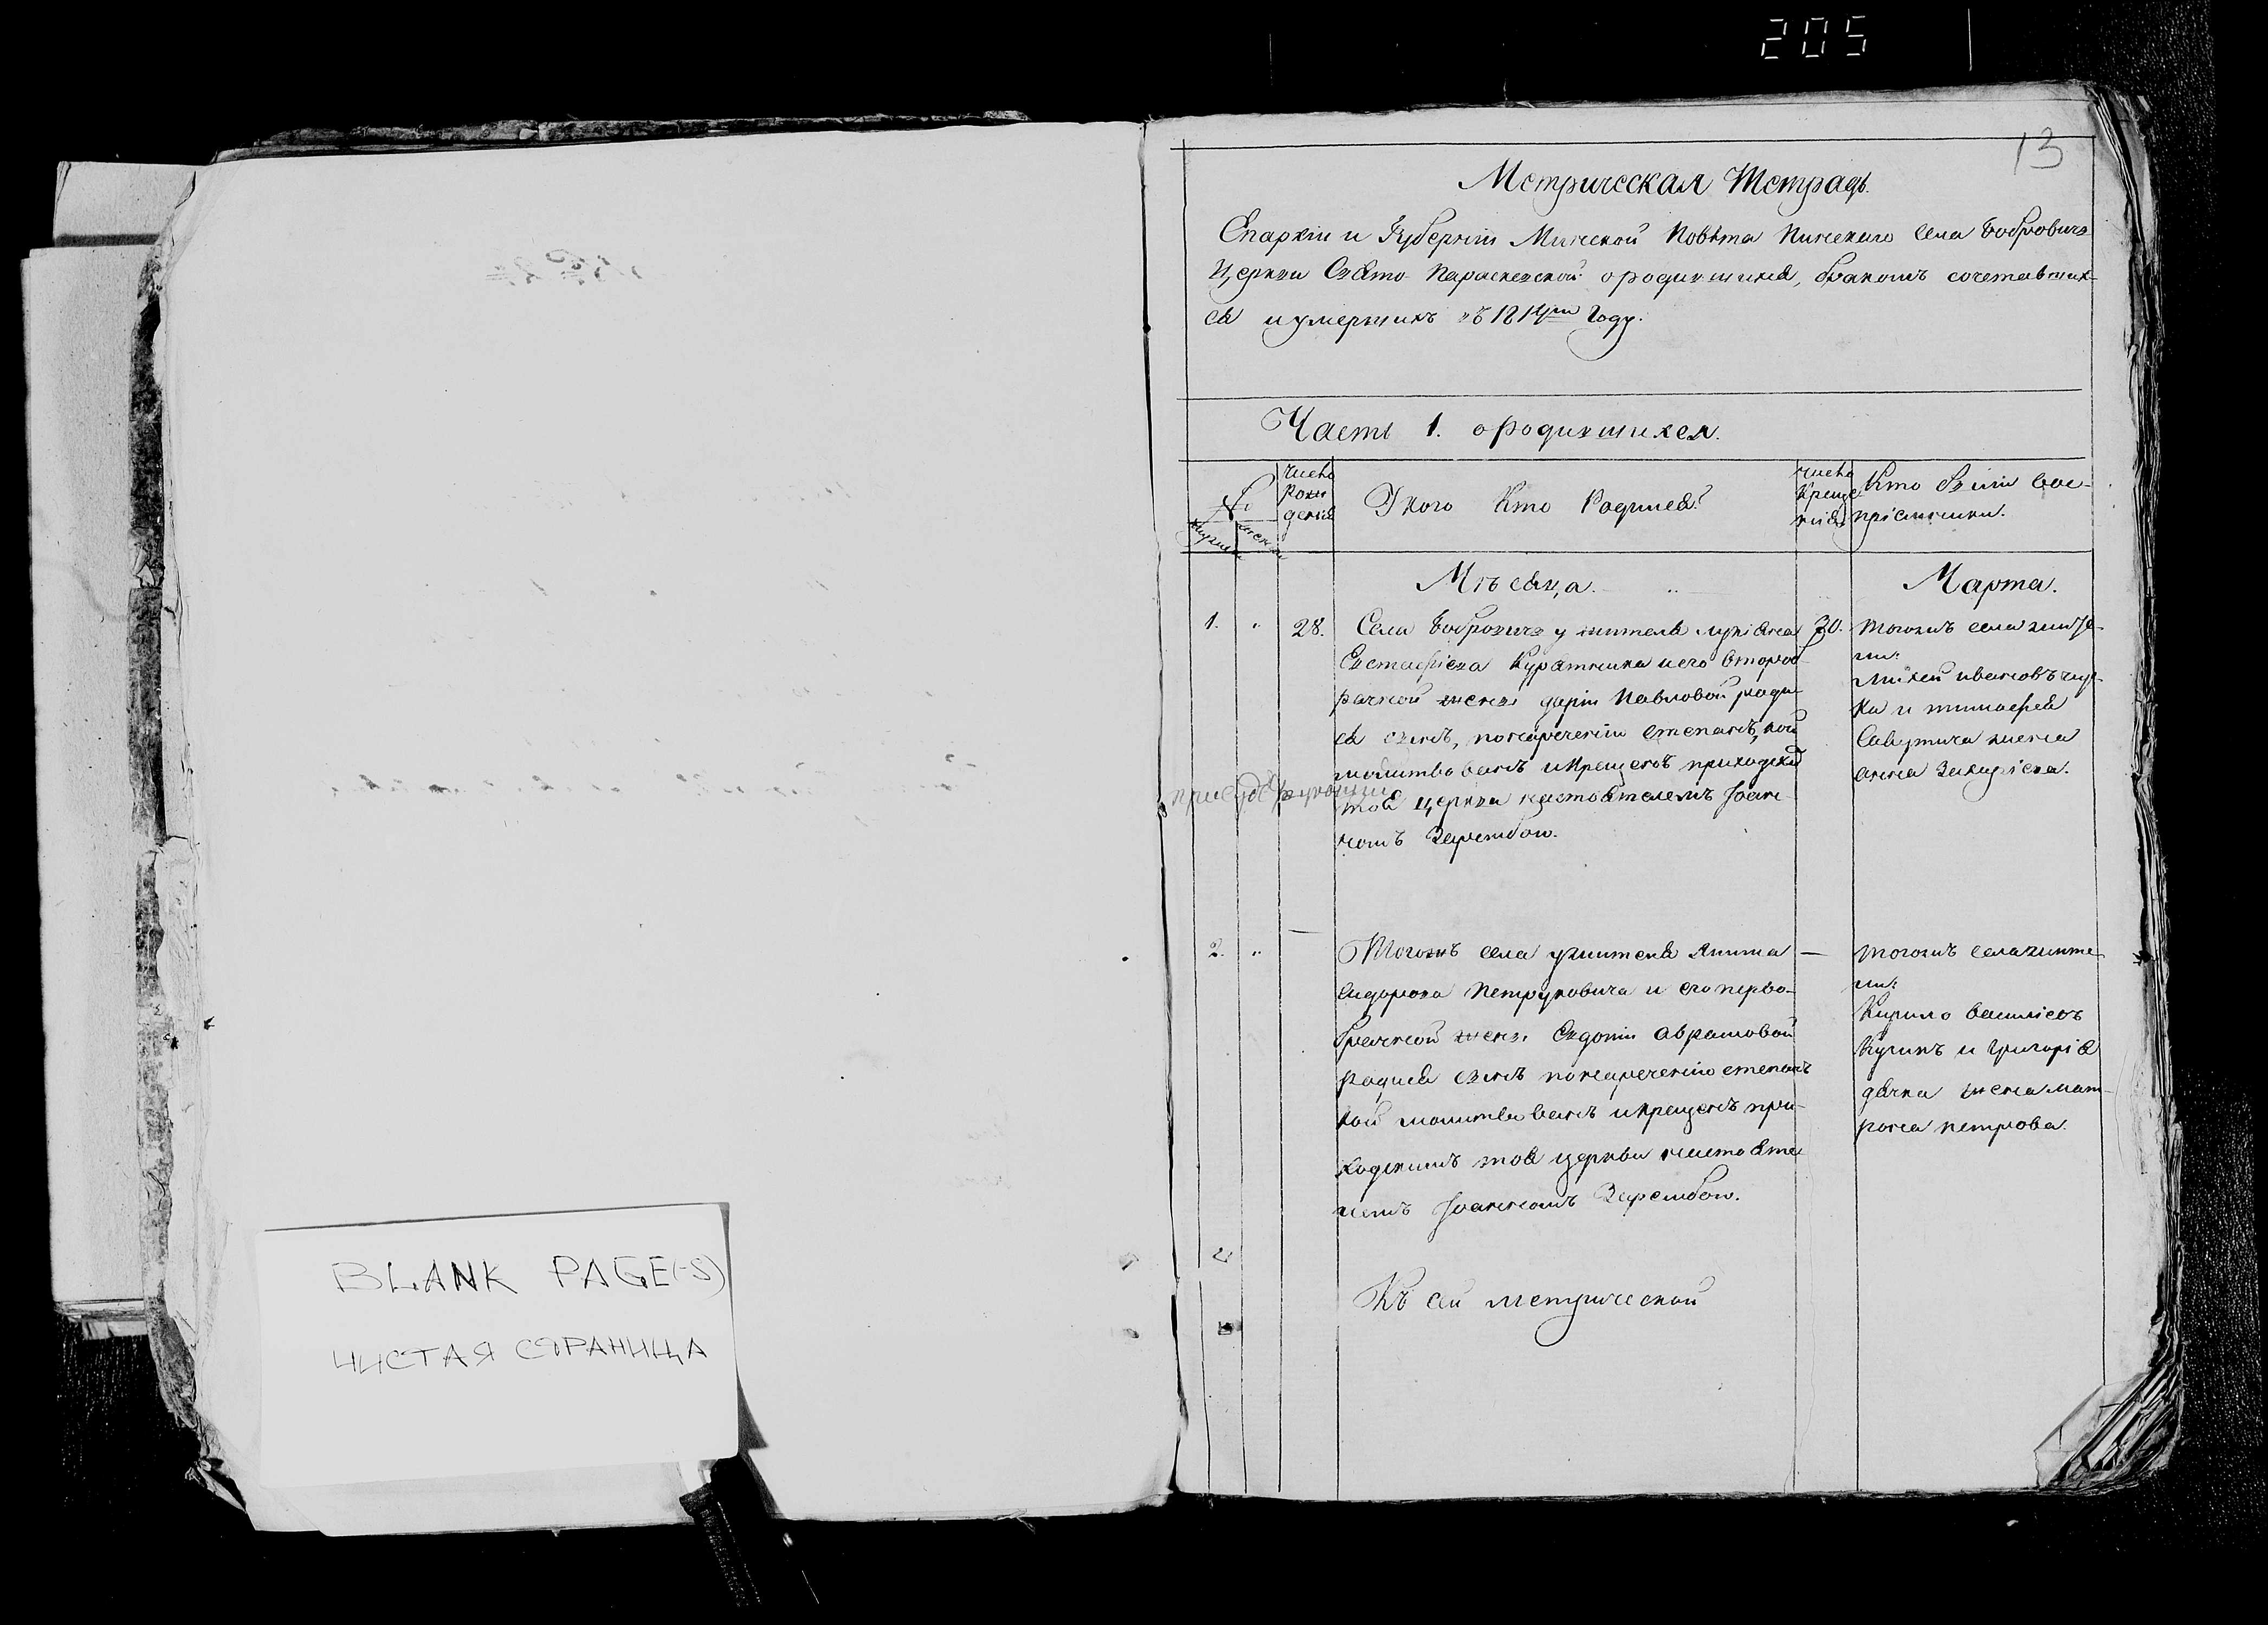 205
13
Метрическая Тетрадь.
Епархіи и Губерніи Минской Повѣта Пинскаго Села Бобровичъ
Церкви Свято Параскевской о родившихся, бракомъ сочетавших-
ся и умершихъ въ году.
Часть 1. о родившихся.
№
Число
Рож
денія
У кого Кто Родился?
Число
Креще
нія
Кто были вос-
пріемники.
Мѣсяца
Марта.
1.
28.
Села Бобровичъ у жителя Лукіяна
Евстафіева и его второб
рачной жены Даріи Павловой роди
ся сынъ, по нареченію Степанъ, кой
молитвованъ и крещенъ приходскій
тоя церкви настоятелемъ Іоан-
номъ Зарембою.
30.
Тогожъ села жите-
ли:
Михей Ивановъ
ка и Тимофея
жена
Анна
2.
Тогожъ села у жителя
Сидорова Петруковича и его перво-
брачной жены Евдокіи Абрамовой
родися сынъ по нареченію Степанъ
кой молитвованъ и крещенъ при-
ходскимъ тоя церкви настояте
лемъ Іоанномъ Зарембою.
—
Тогожъ села жите
ли:
Кирило
и Григорія
жена Мат-
рона Петрова.
Къ сей метрической
BLANK PAGE(-S)
ЧИСТАЯ СТРАНИЦА